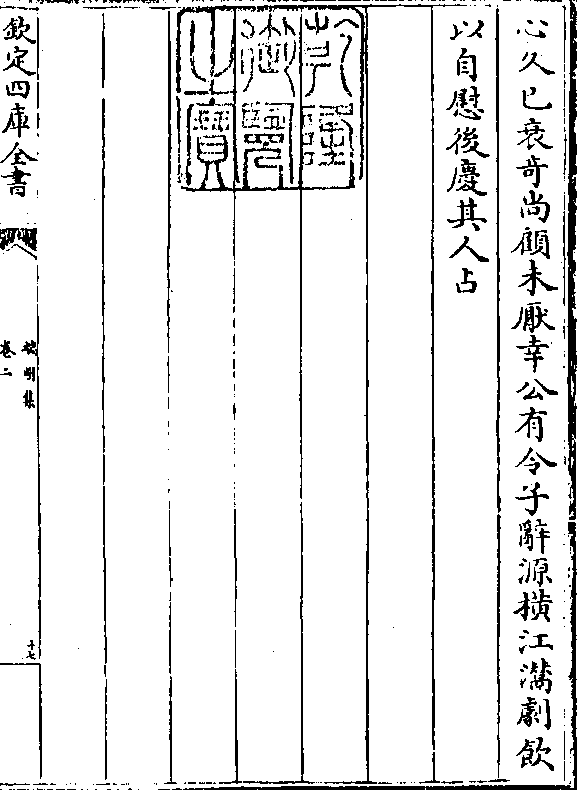 心久已衰奇尚顧未厭幸公有令子辭源橫江滿劇飲
以自慰後慶其人占
乾隆
御覽
之寶
欽定四庫全書
端明集
卷二
十七